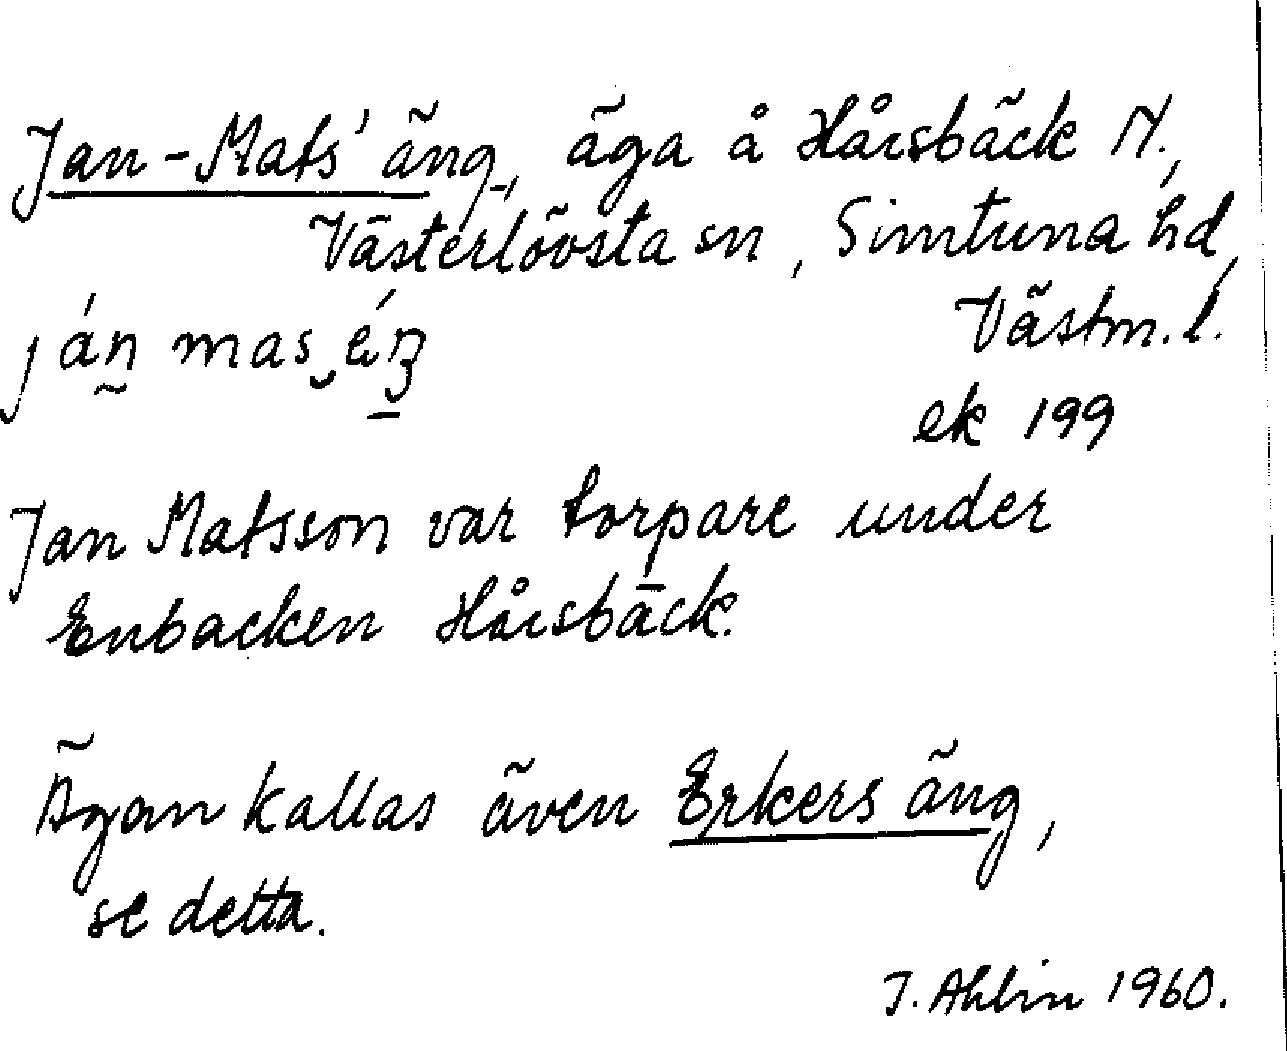 Jan-Mats' äng, äga å Hårsbäck N.,
Västerlövsta sn, Simtuna hd,
Västm. l.
ján mas én
ek 199
Jan Matsson var torpare under
Enbacken Hårsbäck.
Ägan kallas även Erkers äng,
se detta.
I. Ahlin 1960.